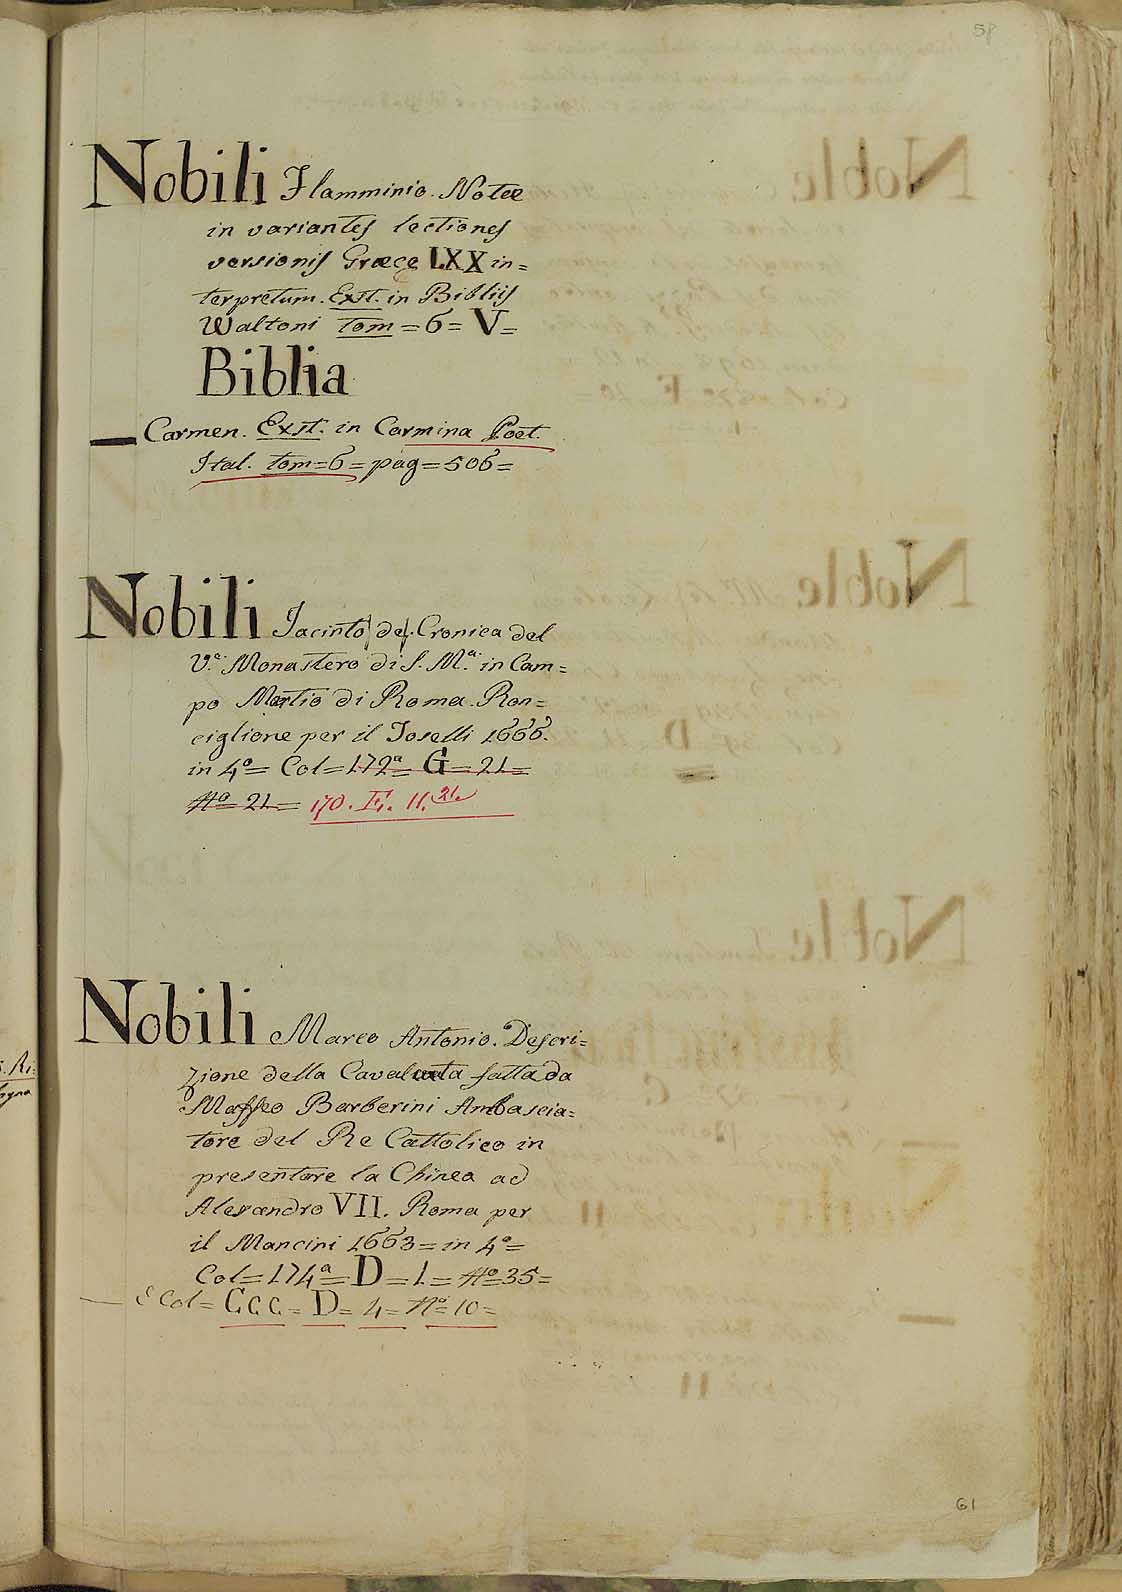 58
Nobili Flamminio. Notæ
in variantes lectiones
versionis Græcę LXX in=
terpretum. Exst. in Bibliis
Waltoni tom = 6 = V =
Biblia
— Carmen. Exst. in Carmina Poet.
Ital. tom = 6 = pag = 506 =
Nobili Jacinto de. Cronica del
V.e Monastero di S. M.a in Cam=
po Martio di Roma. Ron=
ciglione per il Toselli 1666.
in 4.o = Col = 172a = G = 21 =
No = 21 = 170. E. 11. 21.
Nobili Marco Antonio. Descri=
zione della Cavalcata fatta da
Maffeo Barberini Ambascia=
tore del Re Cattolico in
presentare la Chinea ad
Alexandro VII. Roma per
il Mancini 1663 = in 4.o =
Col = 174a = D = 1 = No 35 =
— E Col = CCC = D = 4 = No = 10 =
61